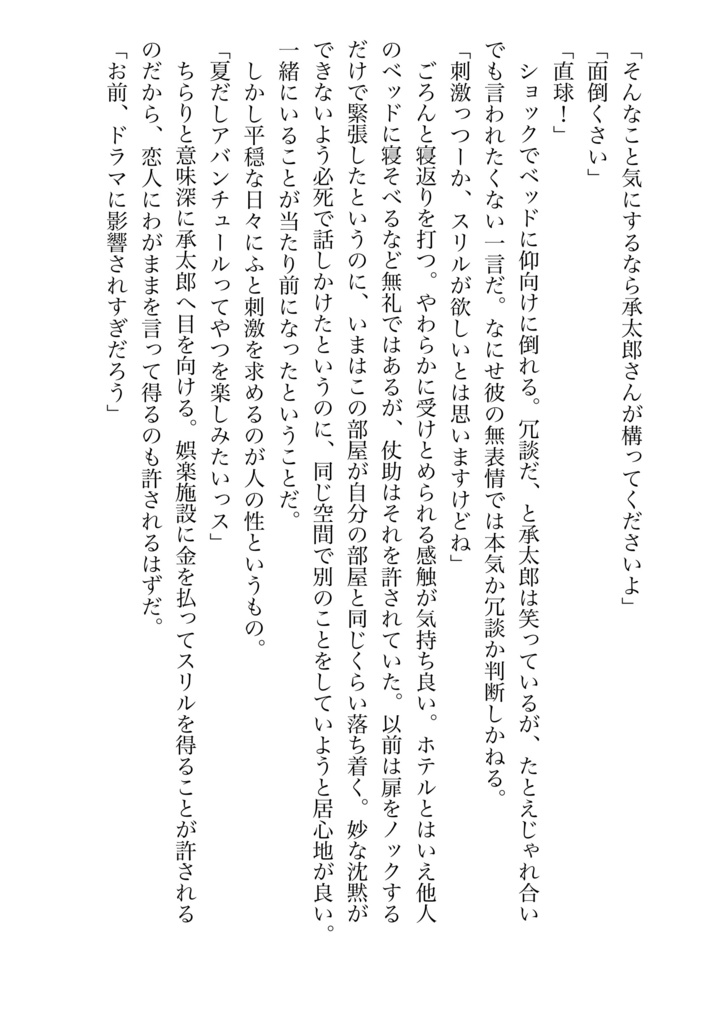 「そんなこと気にするなら承太郎さんが構ってくださいよ」
「面倒くさい」
「直球！」
　ショックでベッドに仰向けに倒れる。冗談だ、と承太郎は笑っているが、たとえじゃれ合い
でも言われたくない一言だ。なにせ彼の無表情では本気か冗談か判断しかねる。
「刺激っつーか、スリルが欲しいとは思いますけどね」
　ごろんと寝返りを打つ。やわらかに受けとめられる感触が気持ち良い。ホテルとはいえ他人
のベッドに寝そべるなど無礼ではあるが、仗助はそれを許されていた。以前は扉をノックする
だけで緊張したというのに、いまはこの部屋が自分の部屋と同じくらい落ち着く。妙な沈黙が
できないよう必死で話しかけたというのに、同じ空間で別のことをしていようと居心地が良い。
一緒にいることが当たり前になったということだ。
　しかし平穏な日々にふと刺激を求めるのが人の性というもの。
「夏だしアバンチュールってやつを楽しみたいっス」
　ちらりと意味深に承太郎へ目を向ける。娯楽施設に金を払ってスリルを得ることが許される
のだから、恋人にわがままを言って得るのも許されるはずだ。
「お前、ドラマに影響されすぎだろう」